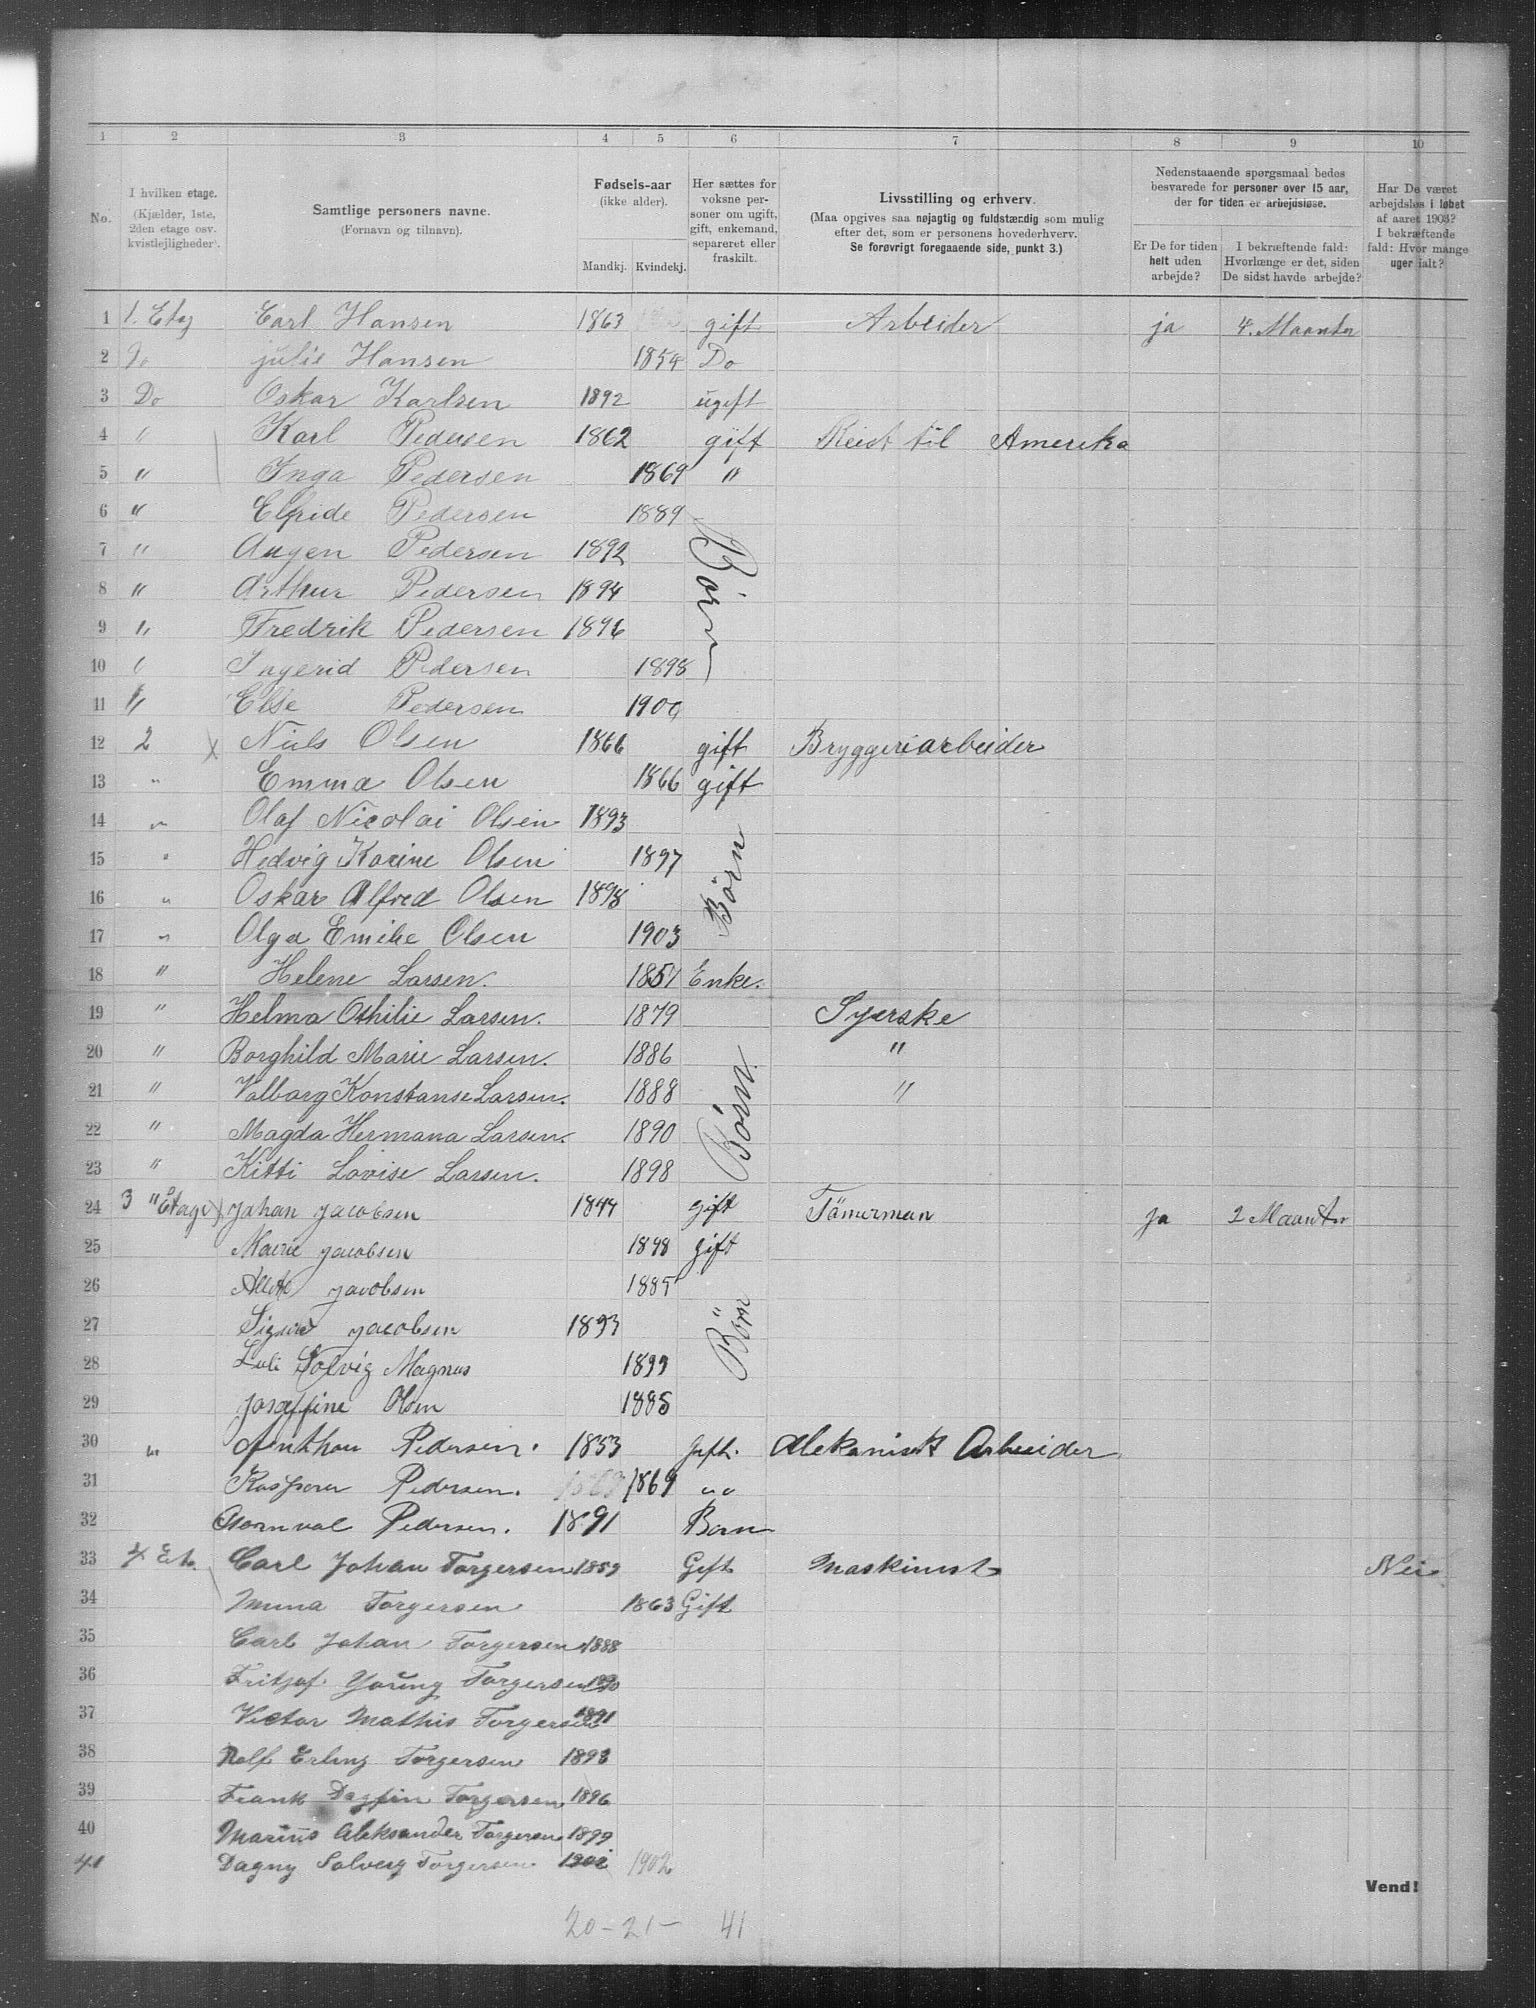 1 2 3 4 5 6 7 8 9 10
No.
I hvilken etage.
(Kjælder, 1ste,
2den etage osv.
kvistlejligheder).
Samtlige personers navne.
(Fornavn og tilnavn).
Fødsels-aar
(ikke alder).
Mandkj. Kvindekj.
Her sættes for
voksne per-
soner om ugift,
gift, enkemand,
separeret eller
fraskilt.
Livsstilling og erhverv.
(Maa opgives saa nøjagtig og fuldstændig som mulig
efter det, som er personens hovederhverv.
Se forøvrigt foregaaende side, punkt 3.)
Nedenstaaende spørgsmaal bedes
besvarede for personer over 15 aar,
der for tiden er arbejdsløse.
Er De for tiden
helt uden
arbejde?
I bekræftende fald:
Hvorlænge er det, siden
De sidst havde arbejde?
Har De været
arbejdsløs i løbet
af aaret 1903?
I bekræftende
fald: Hvor mange
uger ialt?
1 1. Etaj Carl Hansen 1863 gift Arbeider ja 4. Maanter
2 Do Julie Hansen 1854 Do
3 Do Oskar Karlsen 1892 ugift
4 " Karl Pedersen 1862 gift Reist til Amerika
5 " Inga Pedersen 1869 "
6 " Elfride Pedersen 1889
7 " Augen Pedersen 1892 Börn
8 " Arthur Pedersen 1894
9 " Fredrik Pedersen 1896
10 " Ingerid Pedersen 1898
11 " Else Pedersen 1900
12 2 x Niels Olsen 1866 gift Bryggeriarbeider
13 " Emma Olsen 1866 gift
14 " Olaf Nicolai Olsen 1893
15 " Hedvig Karine Olsen 1897 Börn
16 " Oskar Alfred Olsen 1898
17 " Olga Emilie Olsen 1903
18 " Helene Larsen. 1857 Enke.
19 " Helma Othilie Larsen. 1879 Syerske
20 " Borghild Marie Larsen. 1886 "
21 " Valborg Konstanse Larsen. 1888 Börn. "
22 " Magda Hermana Larsen. 1890
23 " Kitti Lovise Larsen. 1898
24 3 "Etage x Johan Jacobsen 1844 gift Tömerman ja 2 Maanter
25 Marie Jacobsen 1848 gift
26 Jacobsen 1885
27 Sigurd Jacobsen 1893 Börn
28 Luli Solvig Magnus 1899
29 Joseffine Olsen 1885
30 " Anthon Pedersen. 1853 Gift. Mekanisk Arbeider
31 Pedersen. 1869 "
32 Pedersen. 1891 Barn
33 4 Eta. Carl Johan Torgersen 1859 Gift Maskinist Nei
34 Mina Torgersen 1863 Gift
35 Carl Johan Torgersen 1888
36 Fritjof Young Torgersen 1890
37 Victor Mathis Torgersen 1891
38 Rolf Erling Torgersen 1893
39 Frank Dagfin Torgersen 1896
40 Marius Aleksander Torgersen 1899
41 Dagny Solveig Torgersen 1902 1902
Vend!
20-21- 41